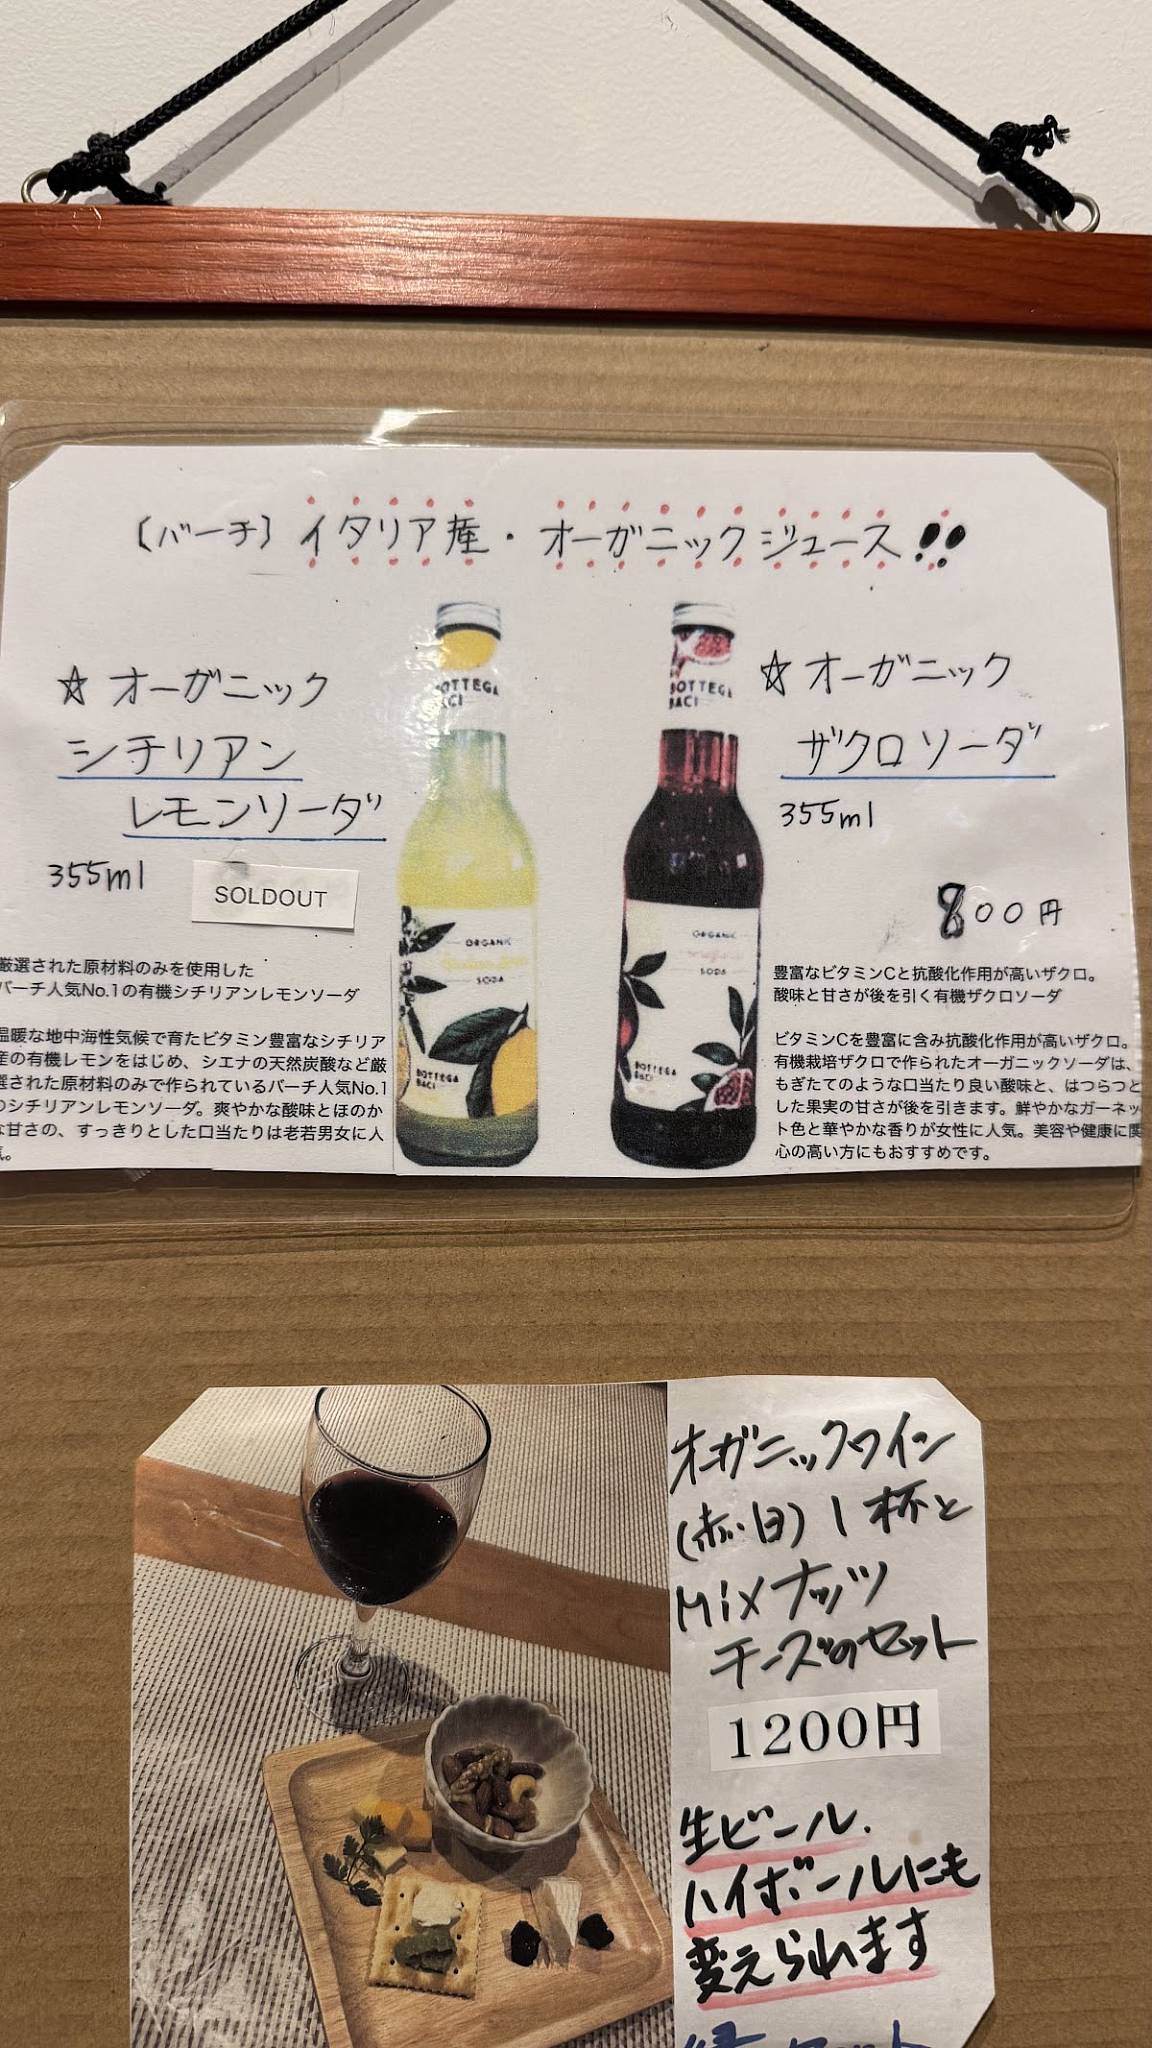 〔バーチ〕イタリア産・オーガニックジュース!!
☆オーガニック
シチリアン
レモンソーダ
355ml
SOLDOUT
厳選された原材料のみを使用した
バーチ人気No.1の有機シチリアンレモンソーダ
温暖な地中海性気候で育たビタミン豊富なシチリア
産の有機レモンをはじめ、シエナの天然炭酸など厳
選された原材料のみで作られているバーチ人気No.1
のシチリアンレモンソーダ。爽やかな酸味とほのか
な甘さの、すっきりとした口当たりは老若男女に人
気。
BOTTEGA
BACI
ORGANIC
SODA
BOTTEGA
BACI
BOTTEGA
BACI
ORGANIC
SODA
BOTTEGA
BACI
☆オーガニック
ザクロソーダ
355ml
800円
豊富なビタミンCと抗酸化作用が高いザクロ。
酸味と甘さが後を引く有機ザクロソーダ
ビタミンCを豊富に含み抗酸化作用が高いザクロ。
有機栽培ザクロで作られたオーガニックソーダは、
もぎたてのような口当たり良い酸味と、はつらつと
した果実の甘さが後を引きます。鮮やかなガーネッ
ト色と華やかな香りが女性に人気。美容や健康に関
心の高い方にもおすすめです。
オーガニックワイン
(赤・白)1杯と
Mixナッツ
チーズのセット
1200円
生ビール.
ハイボールにも
変えられます